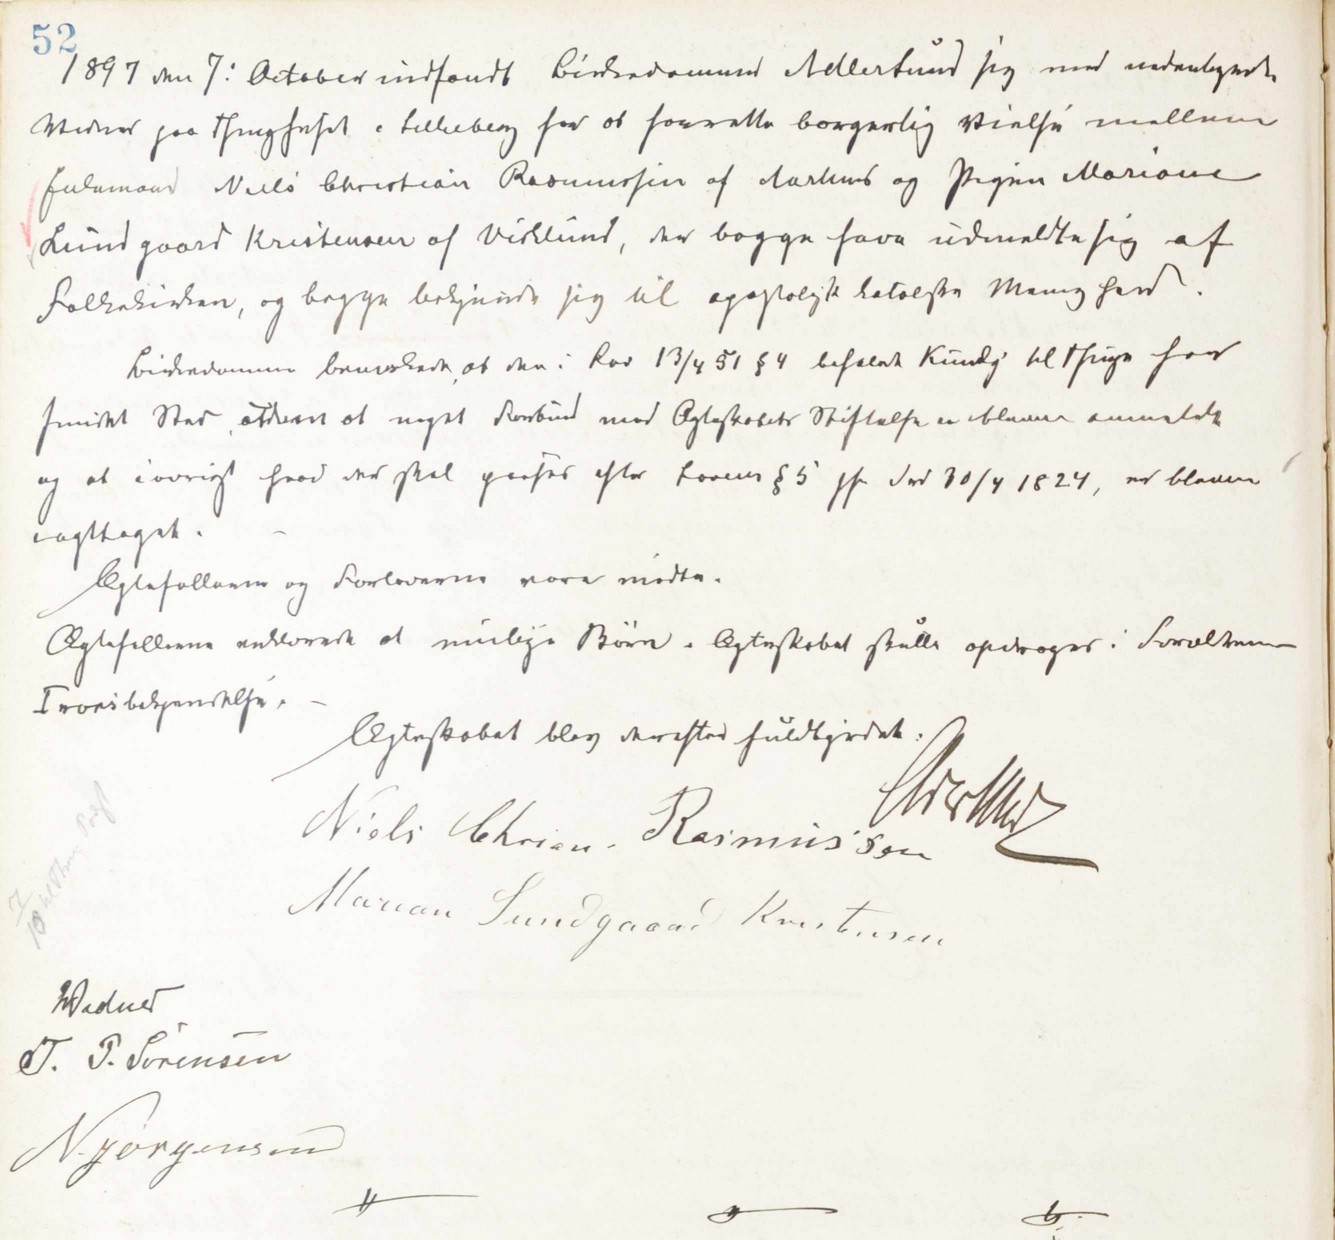 52
1897 den 7: October indfandt Birkedommer Adlerlund sig med nedenbynevnte
Vidner paa Thinghuset i Silkeborg for at foretage borgerlig Vielse mellem
Ungmand Niels Christian Rasmussen af Aarhus og Pigen Mariane
Lundgaard Kristensen af Virklund, der begge have udmeldt sig af
Folkekirken, og begge bekjende sig til apostolisk katolske Menighed.
Birkedommeren bemærkede, at den i Lov 13/4 51 § 4 befalede Kundgj til Thinge har
fundet Sted, uden at noget Forbud mod Ægteskabets Stiftelse er bleven anmeldt
og at iøvrigt hvad der skal paases efter Lovens § 5 jfr Frd 30/4 1824, er bleven
iagttaget. -
Ægtefællerne og Forloverne vare mødte.
Ægtefællerne erklærede at mulige Børn i Ægteskabet skulle opdrages i Forældrenes
Troesbekjendelse. -
Ægteskabet blev derefter fuldbyrdet.
Niels Chrian. Rasmussen
Marian Lundgaard Kristensen
Vidner
J. P. Sörensen
N. Jörgensen